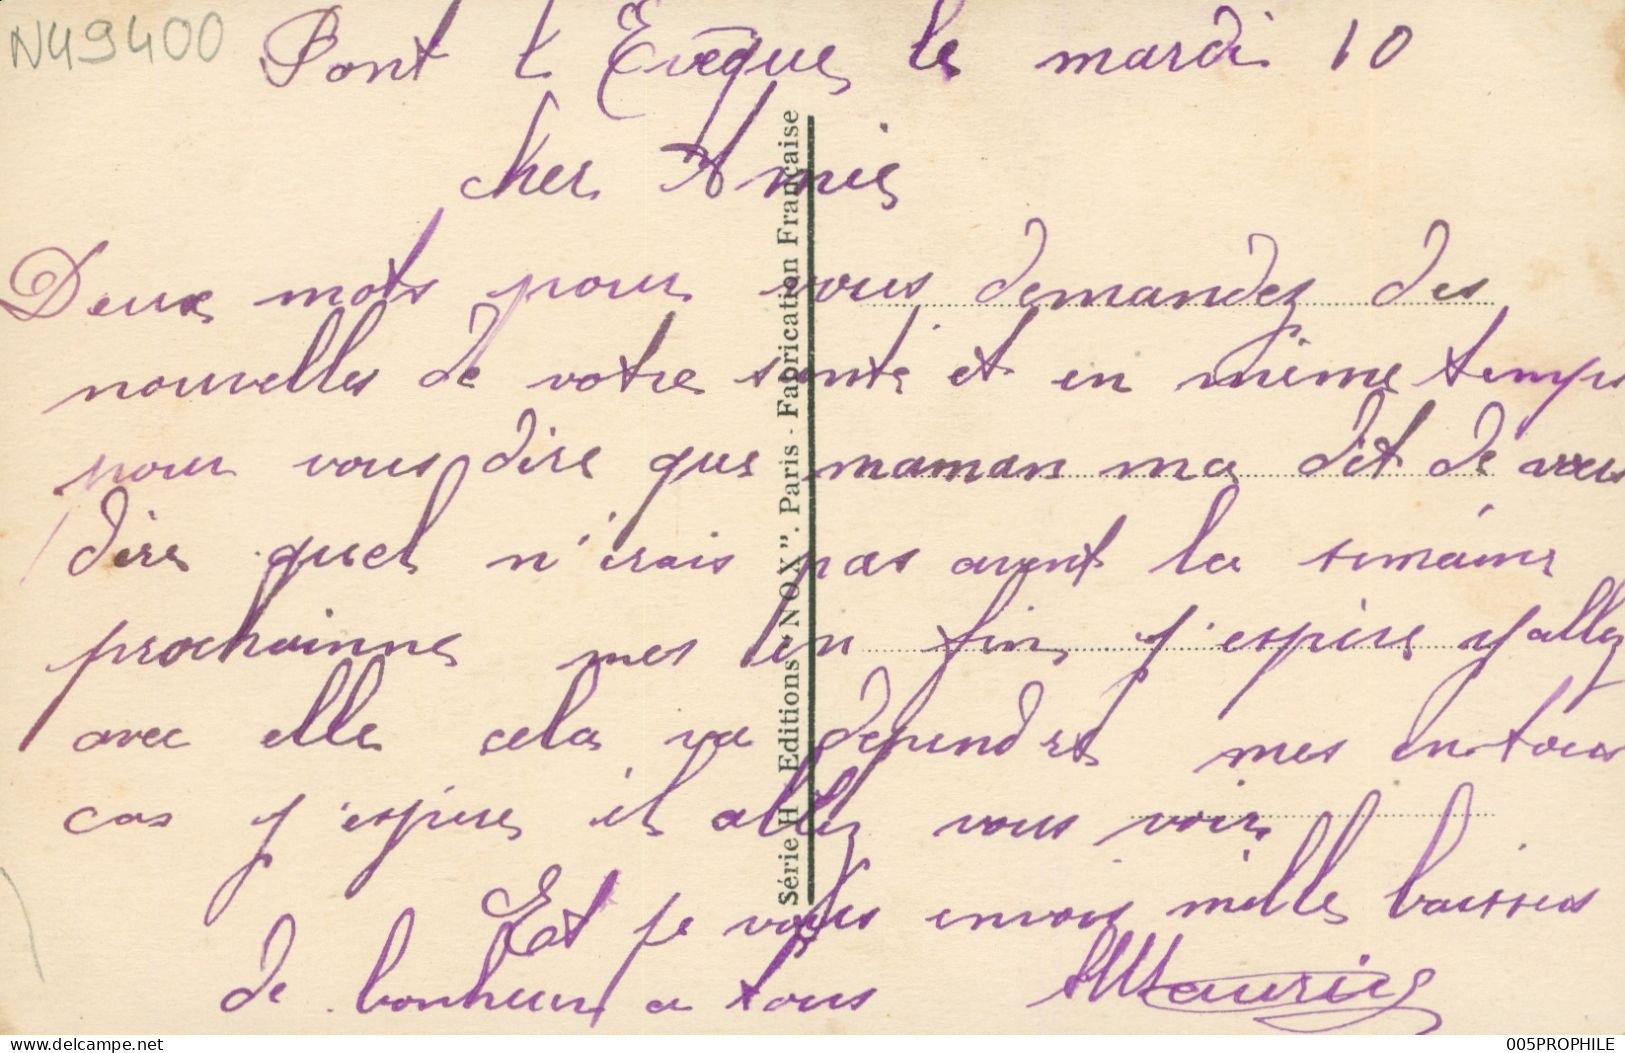 N49400
Pont l Evêque le mardi 10
cher Amis
Deux mots pour vous demandez des
nouvelles de votre sante et en même temps
pour vous dire que maman ma dit de vous
dire quel n'irais pas avant la semaine
prochainne mes en fin j'espère y allez
avec elle cela va dependre mes en tous
cas j'espère allez vous voir
Et je vous envois mille baisses
de bonheur a tous Maurice
Série H Editions "NOX". Paris - Fabrication Française
www.delcampe.net
005PROPHILE